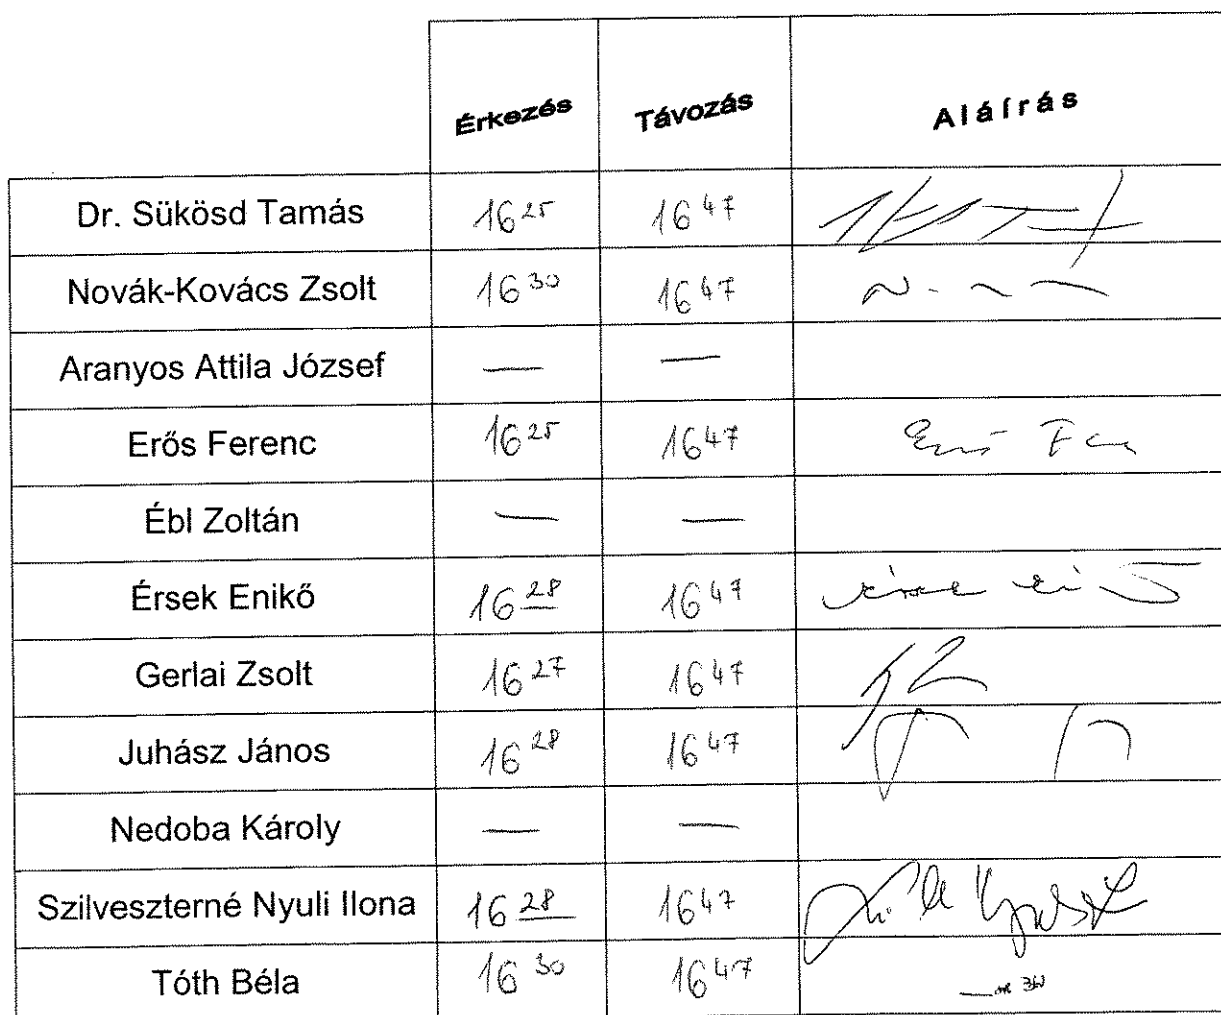 Érkezés Távozás Aláírás
Dr. Sükösd Tamás 16 25 16 47
Novák-Kovács Zsolt 16 30 16 47
Aranyos Attila József — —
Erős Ferenc 16 25 16 47
Ébl Zoltán — —
Érsek Enikő 16 28 16 47
Gerlai Zsolt 16 27 16 47
Juhász János 16 28 16 47
Nedoba Károly — —
Szilveszterné Nyuli Ilona 16 28 16 47
Tóth Béla 16 30 16 47